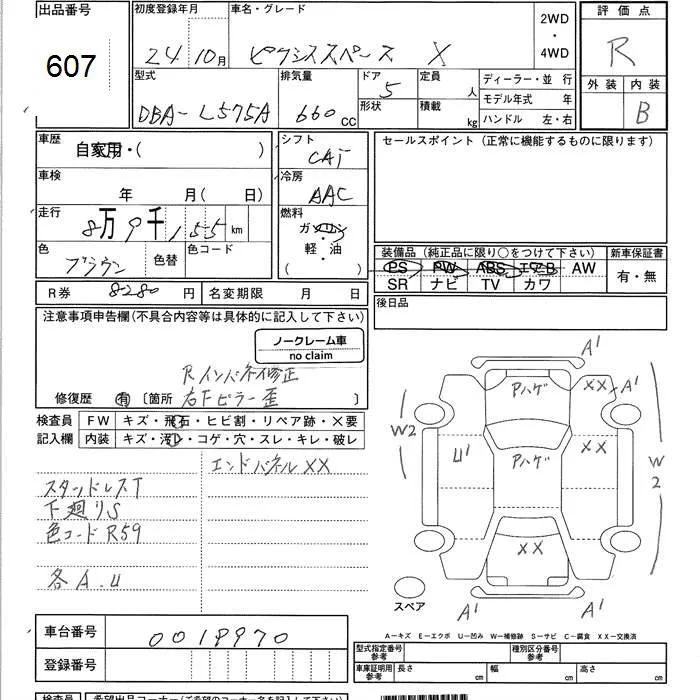 出品番号
607
初度登録年月
24 10月
車名・グレード
ピクシススペース X
2WD
・
4WD
評価点
R
外装 内装
B
型式
DBA-L575A
排気量
660 cc
ドア
5
形状
定員
人
積載
kg
ディーラー・並行
モデル年式 年
ハンドル 左・右
車歴
自家用・( )
車検
年 月( 日)
走行
8万9千155 km
色
ブラウン
色替
色コード
R券 8280 円
名変期限 月 日
シフト
CAT
冷房
AAC
燃料
ガソリン
軽・油
( )
セールスポイント(正常に機能するものに限ります)
装備品(純正品に限り○をつけて下さい)
PS PW ABS エアB AW
SR ナビ TV カワ
新車保証書
有・無
後日品
注意事項申告欄(不具合内容等は具体的に記入して下さい)
ノークレーム車
no claim
Rインパネ修正
修復歴 有 〔箇所 右Fピラー歪 〕
検査員
記入欄
FW キズ・飛石・ヒビ割・リペア跡・×要
内装 キズ・汚レ・コゲ・穴・スレ・キレ・破レ
エンドパネルXX
スタッドレスT
下廻りS
色コードR59
各A.U
A'
Pハゲ
XX
A'
W2
U'
Pハゲ
XX
W2
XX
A'
A'
スペア
A-キズ E-エクボ U-凹み W-補修跡 S-サビ C-腐食 XX-交換済
車台番号
0018970
登録番号
型式指定番号
参考
種別区分番号
参考
車庫証明用
参考
長さ cm
幅 cm
高さ cm
検査員
希望出品コーナー(ご希望のコーナー名を記入